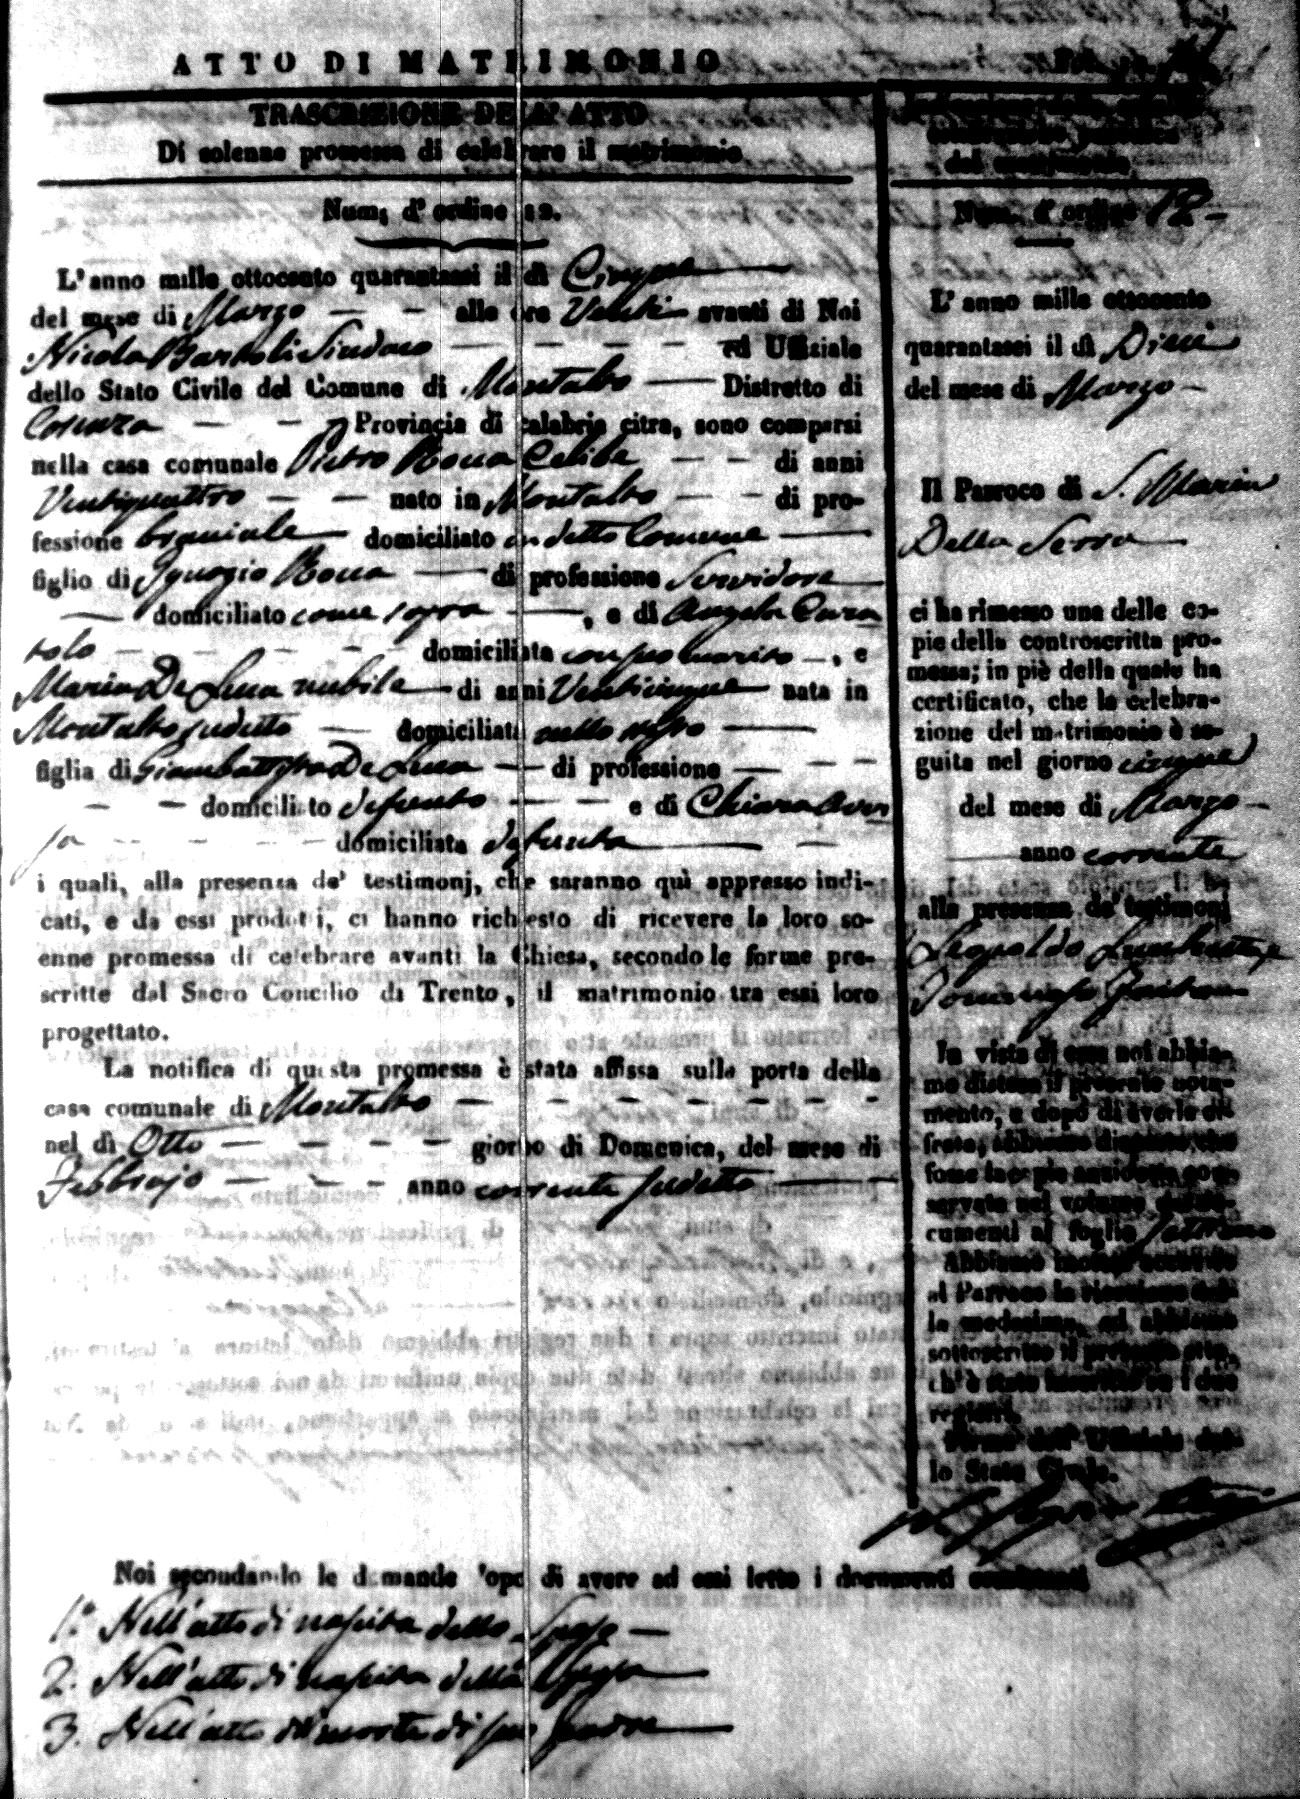 ATTO DI MATRIMONIO
TRASCRIZIONE DELL' ATTO
Di solenne promessa di celebrare il matrimonio
Num. d' ordine 12.
L' anno mille ottocento quarantasei il dì Cinque
del mese di Marzo — — alle ore Venti avanti di Noi
Nicola Bartoli Sindaco — — — — — ed Uffiziale
dello Stato Civile del Comune di Montalto — Distretto di
Cosenza — — — Provincia di calabria citra, sono comparsi
nella casa comunale Pietro Rocca Celibe — — di anni
Ventiquattro — — nato in Montalto — — di pro-
fessione braciale — domiciliato in detto Comune —
figlio di Ignazio Rocca — di professione Servidore
— domiciliato come sopra —, e di Angela Cura
tolo — — — — — domiciliata con suo marito —, e
Maria De Luca nubile — di anni Venticinque nata in
Montalto sudetto — domiciliata nello stesso —
figlia di Giambattista De Luca — di professione — — —
— — domiciliato defunto — — e di Chiara Aver
sa — — — — — domiciliata defunta — —
i quali, alla presenza de' testimonj, che saranno quì appresso indi-
cati, e da essi prodotti, ci hanno richiesto di ricevere la loro so-
enne promessa di celebrare avanti la Chiesa, secondo le forme pre-
scritte dal Sacro Concilio di Trento, il matrimonio tra essi loro
progettato.
La notifica di questa promessa è stata affissa sulla porta della
casa comunale di Montalto — — — — — — — —
nel dì Otto — — — — — giorno di Domenica, del mese di
Febbrajo — — — — anno corrente sudetto —
Noi secondando le domande dopo di avere ad essi letto i documenti consistenti
1.° Nell'atto di nascita dello Sposo —
2. Nell'atto di nascita della Sposa —
3. Nell'atto di morte di suo Padre —
del matrimonio
Num. d' ordine 12 —
L' anno mille ottocento
quarantasei il dì Dieci
del mese di Marzo —
Il Parroco di S. Maria
Della Serra —
ci ha rimesso una delle co-
pie della controscritta pro-
messa; in piè della quale ha
certificato, che la celebra-
zione del matrimonio è se-
guita nel giorno cinque
del mese di Marzo —
— anno corrente
alla presenza de' testimonj
Leopoldo
Domenico
In vista di essa noi abbia-
mo disteso il presente nota-
mento, e dopo di averlo ci-
frato, abbiamo disposto, che
fosse la copia anzidetta con-
servata nel volume de' do-
cumenti al foglio
Abbiamo inoltre accusato
al Parroco la ricezione del-
la medesima, ed abbiamo
sottoscritto il presente atto,
ch' è stato inscritto su i due
registri.
Firma dell' Uffiziale del-
lo Stato Civile.